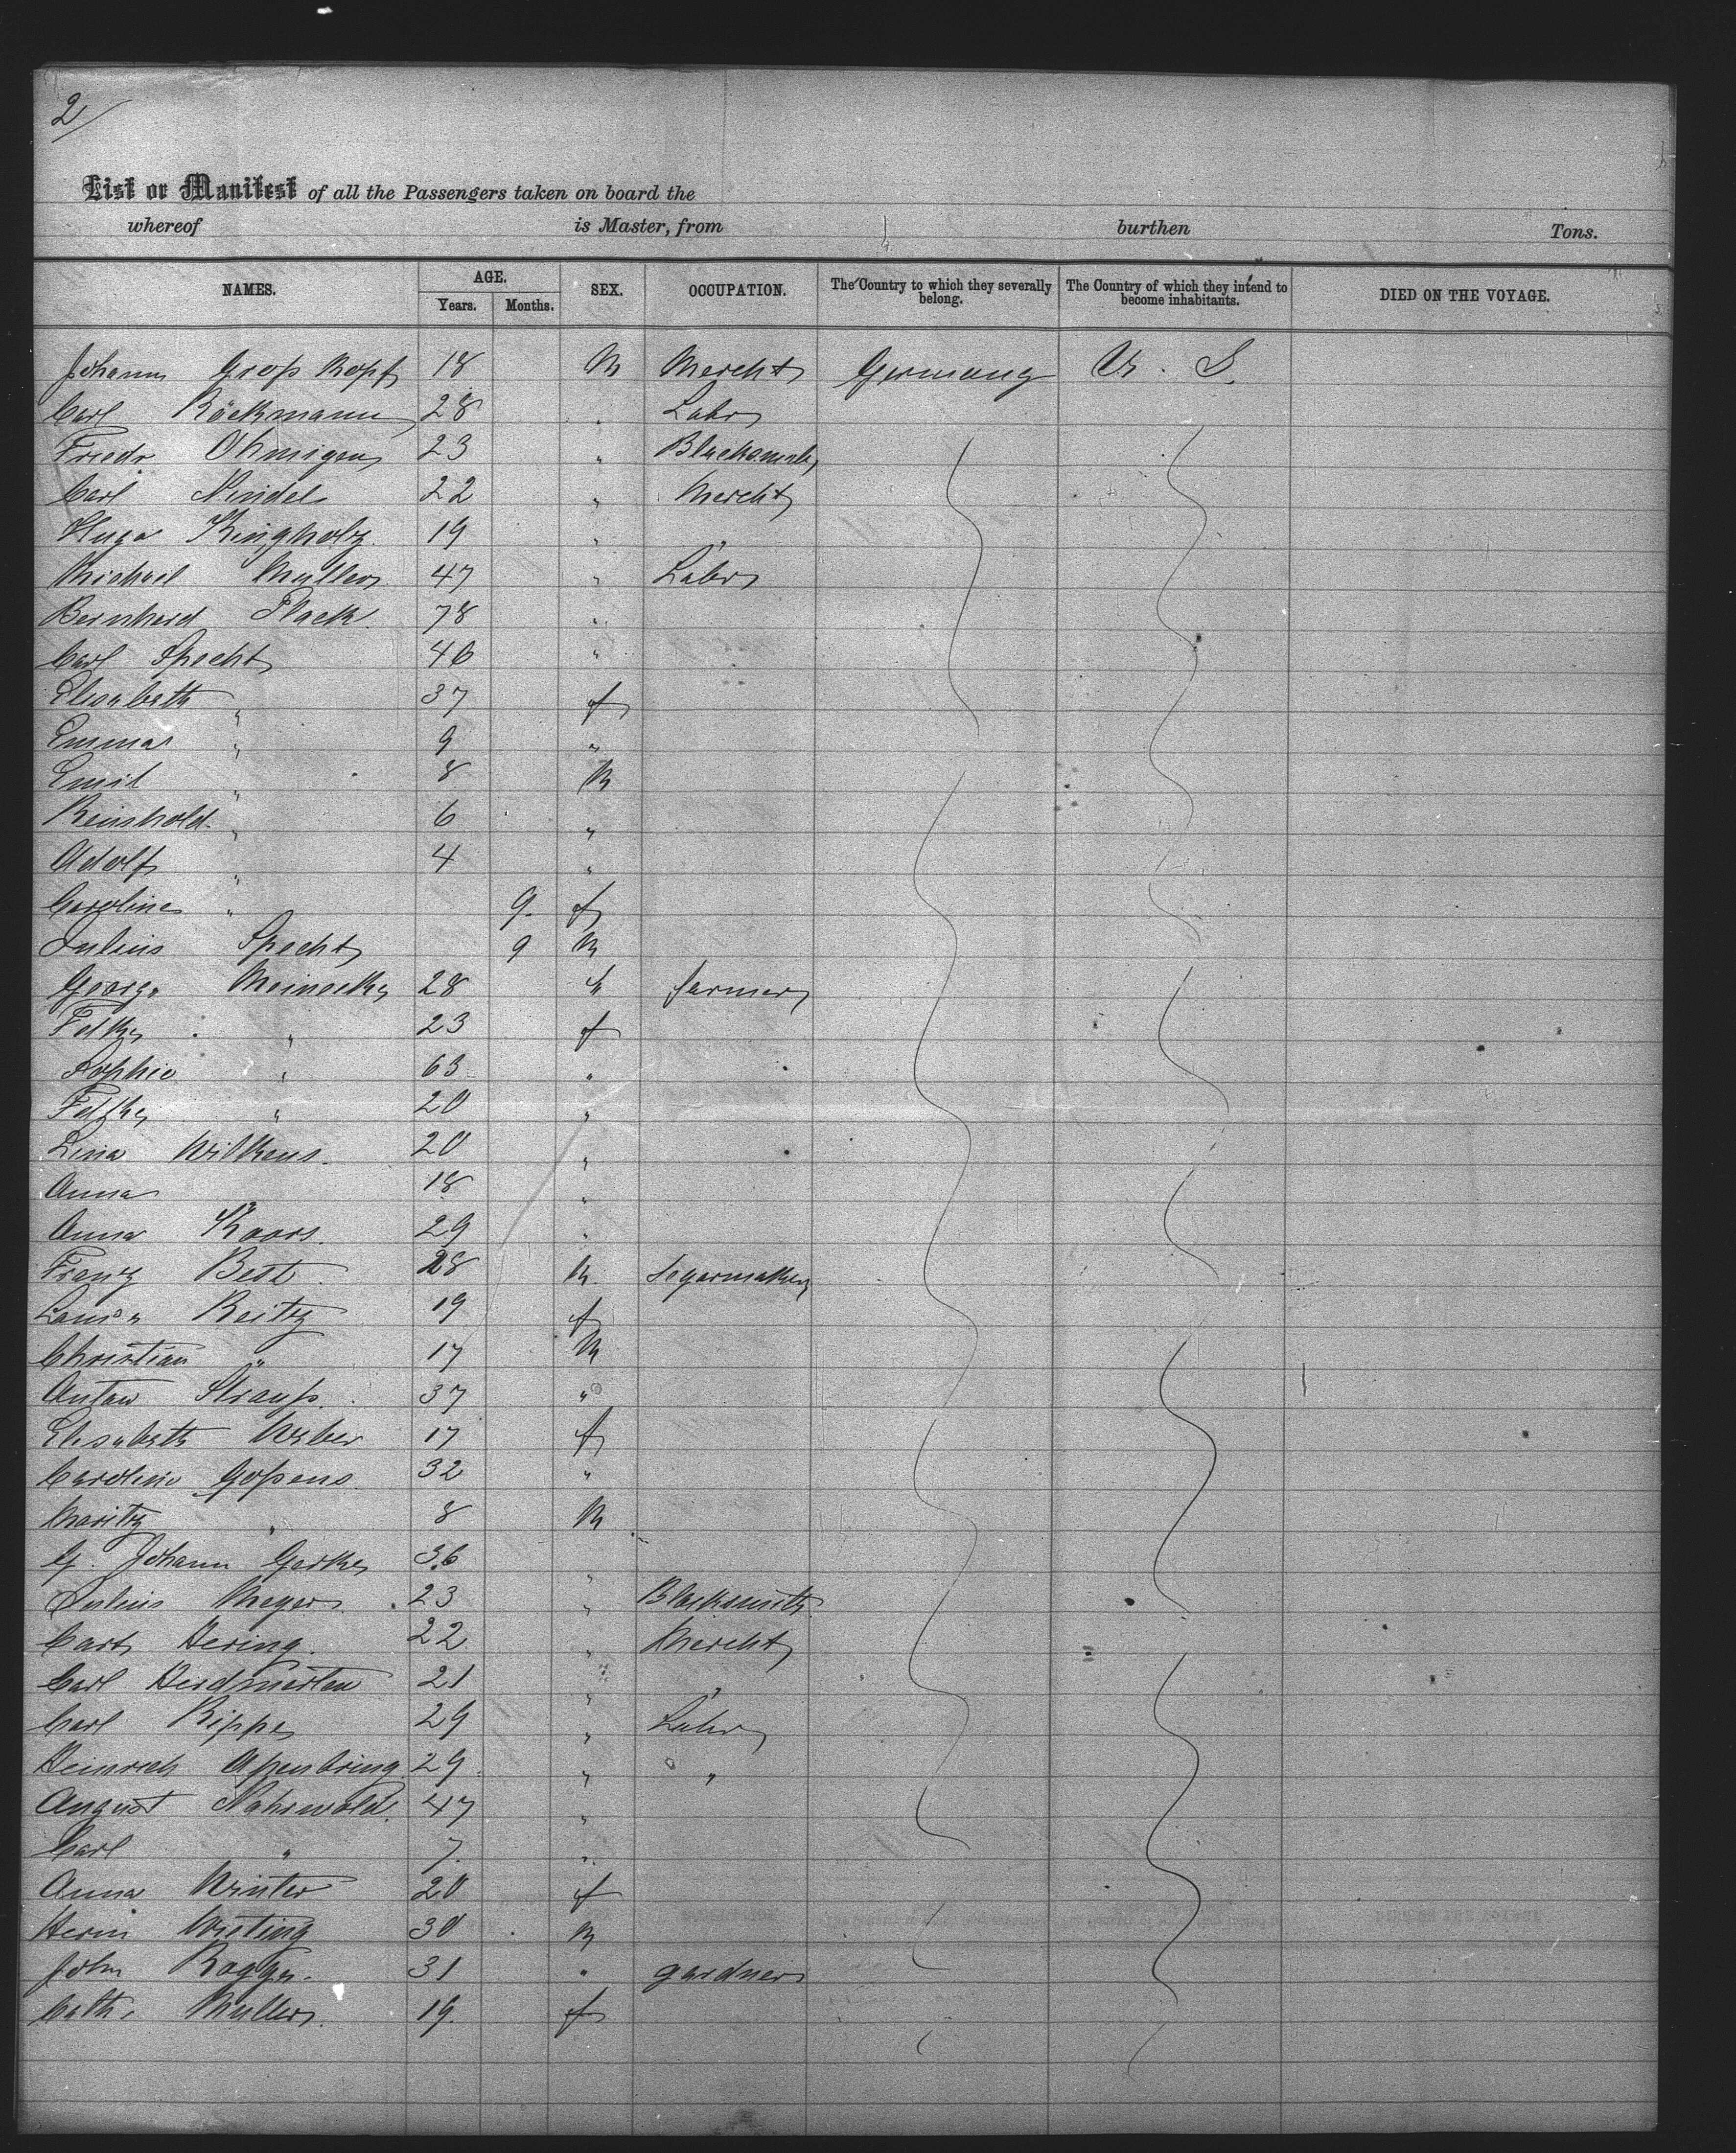 2/
List or Manifest of all the Passengers taken on board the
whereof is Master, from burthen Tons.
NAMES. AGE. Years. Months. SEX. OCCUPATION. The Country to which they severally belong. The Country of which they intend to become inhabitants. DIED ON THE VOYAGE.
Johann Groß Kopf 18 M Mercht Germany U. S.
Carl Röckmann 28 " Labr
Friedr 23 " Blacksmith
Carl Nindel 22 " Mercht
Hugo Kingholz 19 " "
Michael Muller 47 " Labr
Bernhard Plack 78 "
Carl Specht 46 "
Elisabeth " 37 f
Emma " 9 "
Emil " 8 M
Reinhold " 6 "
Adolf " 4 "
Caroline " 9 f
Julius Specht 9 M
George Meinecke 28 " farmer
23 f
Sophie " 63 "
20 "
Lina Wilkens 20 "
Anna 18 "
Anna Koors 29 "
Franz Best 28 M Segarmaker
Louisa Reitz 19 f
Christian " 17 M
Anton Strauß 37 "
Elisabeth Weber 17 f
Caroline Goßens 32 "
Moritz " 8 M
G. Johann Gerke 36 "
Julius Meyer 23 " Blacksmith
Carl Hering 22 " Mercht
Carl 21 " "
Carl Rippe 29 " Labr
Heinrich 29 " "
August Nahrwold 47 "
Carl " 7 "
Anna Winter 20 f
Herm Wieting 30 M
John Rogge 31 " gardner
Cath. Muller 19 f